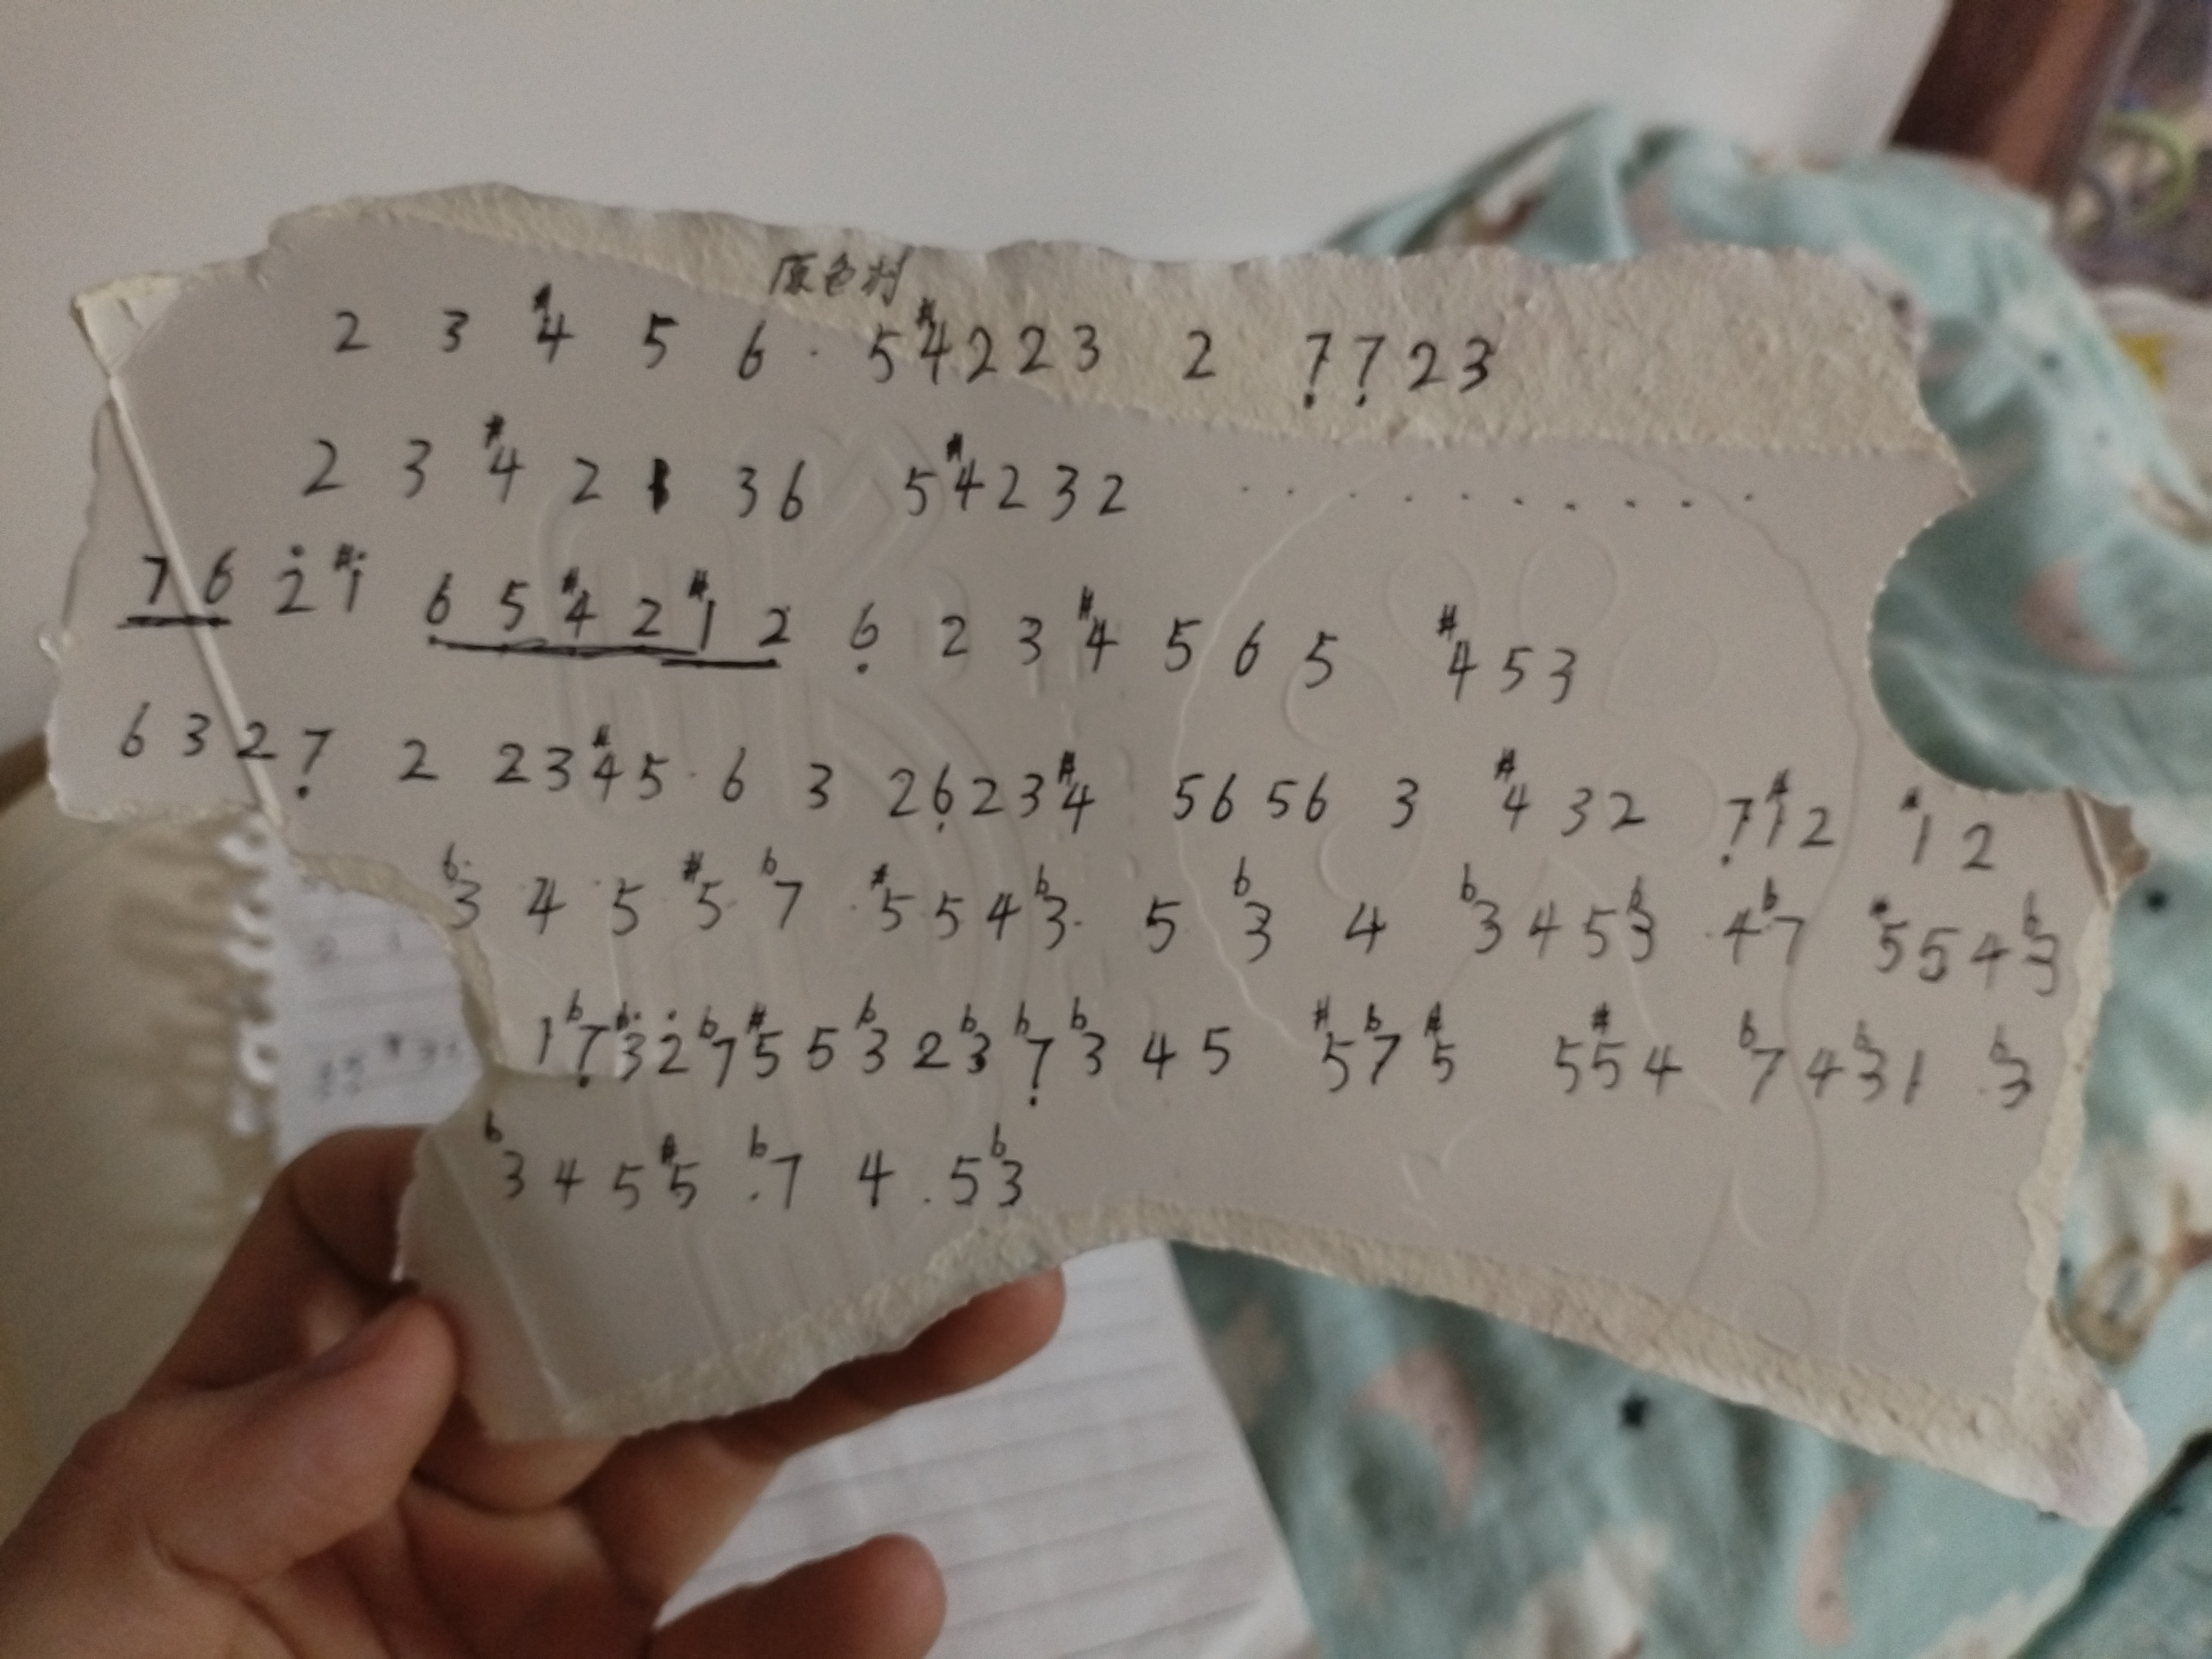 原色村
2 3 #4 5 6 · 5 #4 2 2 3 2 7̣ 7̣ 2 3
2 3 #4 2 3 6 5 #4 2 3 2 · · · · · · · · · ·
7 6 2̇ #1̇ 6 5 #4 2 #1 2 6̣ 2 3 #4 5 6 5 #4 5 3
6 3 2 7̣ 2 2 3 #4 5 · 6 3 2 6̣ 2 3 #4 5 6 5 6 3 #4 3 2 7̣ #1 2 #1 2
b3 4 5 #5 b7 · #5 5 4 b3 · 5 b3 4 b3 4 5 b3 · 4 b7 #5 5 4 b3
1 b7̣ b3̇ 2̇ b7 #5 5 b3 2 b3 b7̣ b3 4 5 #5 b7 #5 5 #5 4 b7 4 b3 1 · b3
b3 4 5 #5 · b7 4 · 5 b3